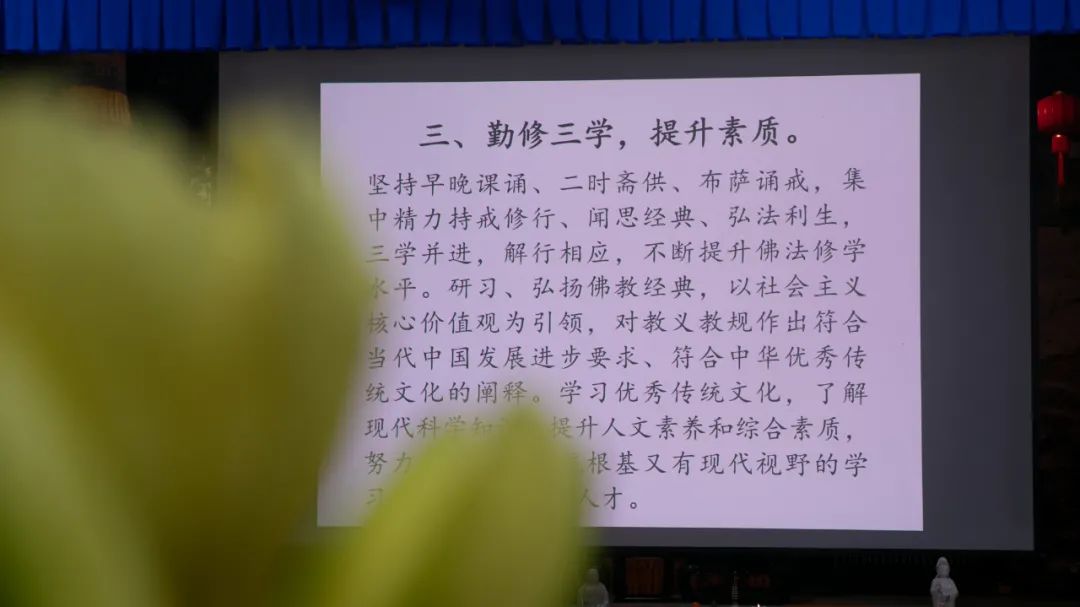 三、勤修三学，提升素质。
坚持早晚课诵、二时斋供、布萨诵戒，集
中精力持戒修行、闻思经典、弘法利生，
三学并进，解行相应，不断提升佛法修学
水平。研习、弘扬佛教经典，以社会主义
核心价值观为引领，对教义教规作出符合
当代中国发展进步要求、符合中华优秀传
统文化的阐释。学习优秀传统文化，了解
现代科学知识，提升人文素养和综合素质，
努力 根基又有现代视野的学
人才。